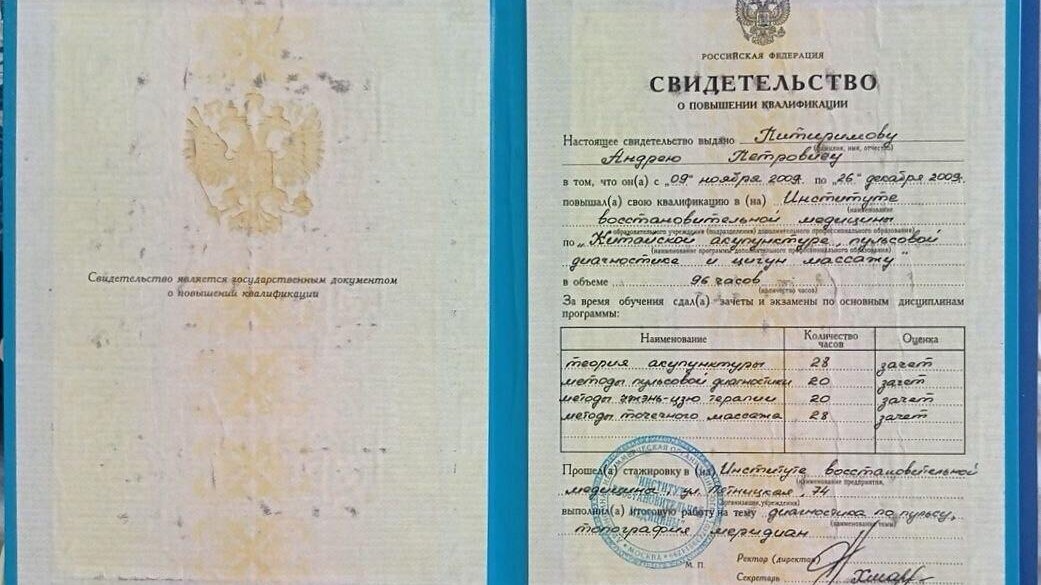 Свидетельство является государственным документом
о повышении квалификации
РОССИЙСКАЯ ФЕДЕРАЦИЯ
СВИДЕТЕЛЬСТВО
О ПОВЫШЕНИИ КВАЛИФИКАЦИИ
Настоящее свидетельство выдано Питиримову
(фамилия, имя, отчество)
Андрею Петровичу
в том, что он(а) с „09" ноября 2009. по „26" декабря 2009.
повышал(а) свою квалификацию в (на) Институте
(наименование
восстановительной медицины
образовательного учреждения (подразделения) дополнительного профессионального образования)
по „Китайской акупунктуре, пульсовой
(наименование программы дополнительного профессионального образования)
диагностике и цигун массажу"
в объеме 96 часов
(количество часов)
За время обучения сдал(а) зачеты и экзамены по основным дисциплинам
программы:
Наименование Количество часов Оценка
теория акупунктуры 28 зачет
методы пульсовой диагностики 20 зачет
методы чжэнь-цзю терапии 20 зачет
методы точечного массажа 28 зачет
Прошел(а) стажировку в (на) Институте восстановительной
(наименование предприятия,
медицины, ул. Пятницкая, 74
организации, учреждения)
выполнил(а) итоговую работу на тему диагностика по пульсу,
(наименование темы)
топография меридиан
"ИНСТИТУТ
ВОССТАНОВИТЕЛЬНОЙ
МЕДИЦИНЫ"
МОСКВА
М. П.
Ректор (директор)
Секретарь